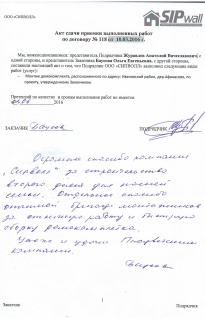 SIPwall
ООО «СИПВОЛЛ»
Акт сдачи приемки выполненных работ
по договору № 118 от 10.03.2016 г.
Мы, нижеподписавшиеся: представитель Подрядчика Журавлев Анатолий Вячеславович с
одной стороны, и представитель Заказчика Баунова Ольга Евгеньевна, с другой стороны,
составили настоящий акт о том, что Подрядчик ООО «СИПВОЛЛ» выполнил следующие виды
работ (услуг):
- Монтаж домокомплекта, расположенного по адресу: Ивановский район, дер. по
проекту, утвержденному Заказчиком.
Претензий по качеству и срокам выполнения работ не имеется
2016
ЗАКАЗЧИК ПОДРЯДЧИК
Огромное спасибо компании
"Сипволл" за строительство
второго дома для нашей
семьи. Отдельное спасибо
бригаде монтажников
за отличную работу и быструю
сборку домокомплекта.
Удачи и компании.
Заказчик Подрядчик